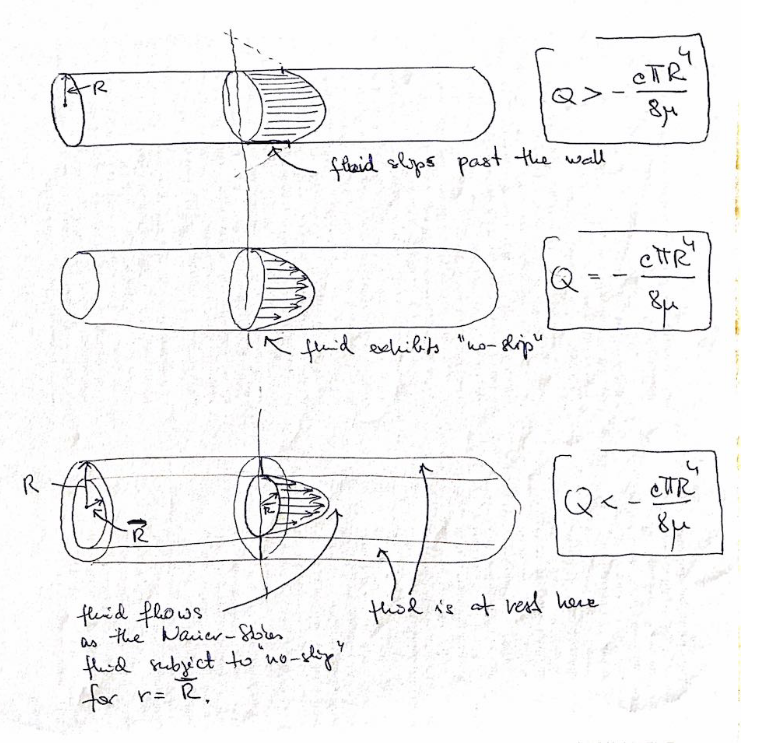 R
Q > - cπR⁴ / 8μ
fluid slips past the wall
Q = - cπR⁴ / 8μ
fluid exhibits "no-slip"
R
R̅
R
Q < - cπR⁴ / 8μ
fluid flows
as the Navier-Stokes
fluid subject to "no-slip"
for r = R̅.
fluid is at rest here